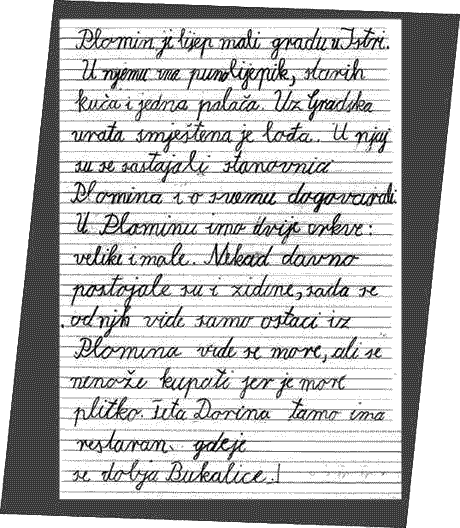 Plomin ji lijep mali gradu u Istri.
U njemu ima puno lijepih, starih
kuća i jedna palača. Uz Gradska
vrata smještena je loža. U njoj
su se sastajali stanovnici
Plomina i o svemu dogovarali.
U Plominu imo dvije crkve:
velike i male. Nekad davno
postojale su i zidine, sada se
od njih vide samo ostaci iz
Plomina vide se more, ali se
nemože kupati jer je more
plitko. Teta Dorina tamo ima
restaran gdeje
se dobja Bukalice.